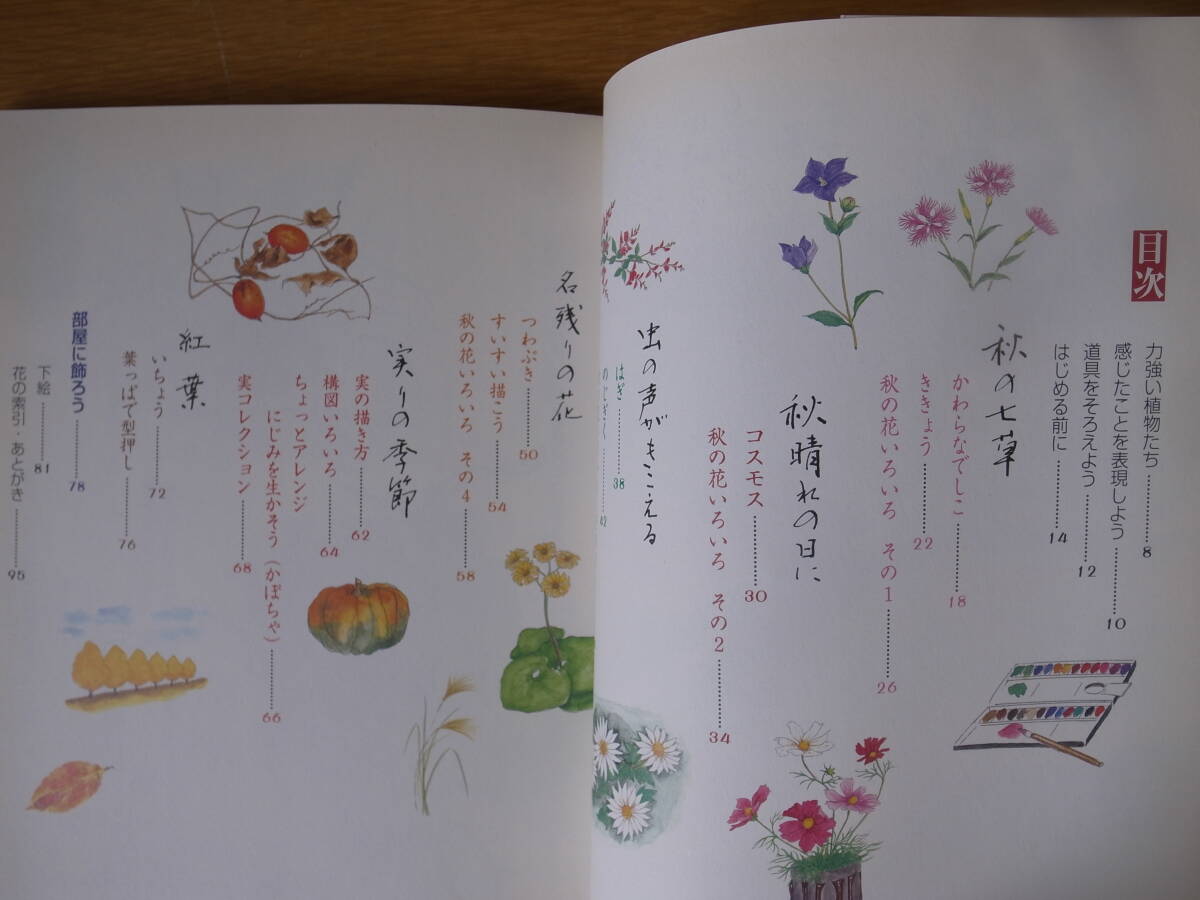 目次
力強い植物たち……8
感じたことを表現しよう……10
道具をそろえよう……12
はじめる前に……14
秋の七草
かわらなでしこ……18
ききょう……22
秋の花いろいろ その1……26
秋晴れの日に
コスモス……30
秋の花いろいろ その2……34
虫の声がきこえる
はぎ……38
のじぎく……42
名残りの花
つわぶき……50
すいすい描こう……54
秋の花いろいろ その4……58
実りの季節
実の描き方……62
構図いろいろ……64
ちょっとアレンジ
にじみを生かそう(かぼちゃ)……66
実コレクション……68
紅葉
いちょう……72
葉っぱで型押し……76
部屋に飾ろう……78
下絵……81
花の索引・あとがき……95